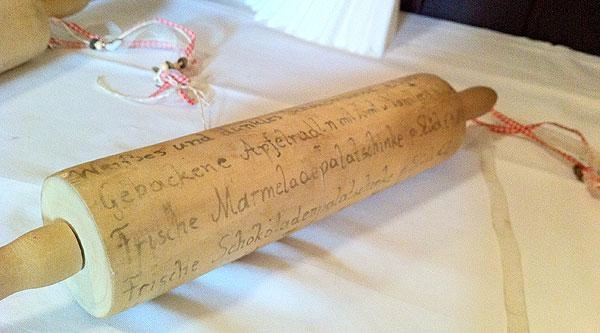 Weißes und dunkles
Gebackene Apfelradln mit Zimt
Frische Marmeladepalatschinke
Frische Schokoladenpalatschinke